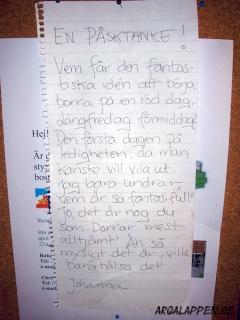 EN PÅSKTANKE!
Vem får den fantas-
tiska idén att börja
borra på en röd dag,
långfredag förmiddag?
Den första dagen på
ledigheten, då man
kanske vill vila ut.
Jag bara undrar,
vem är så fantasifull?
Jo, det är nog du
som borrar mest
alltjämt! Än så
mysigt det är, ville
bara hälsa det!
Johanna
Hej!
Är
ARGALAPPEN.SE